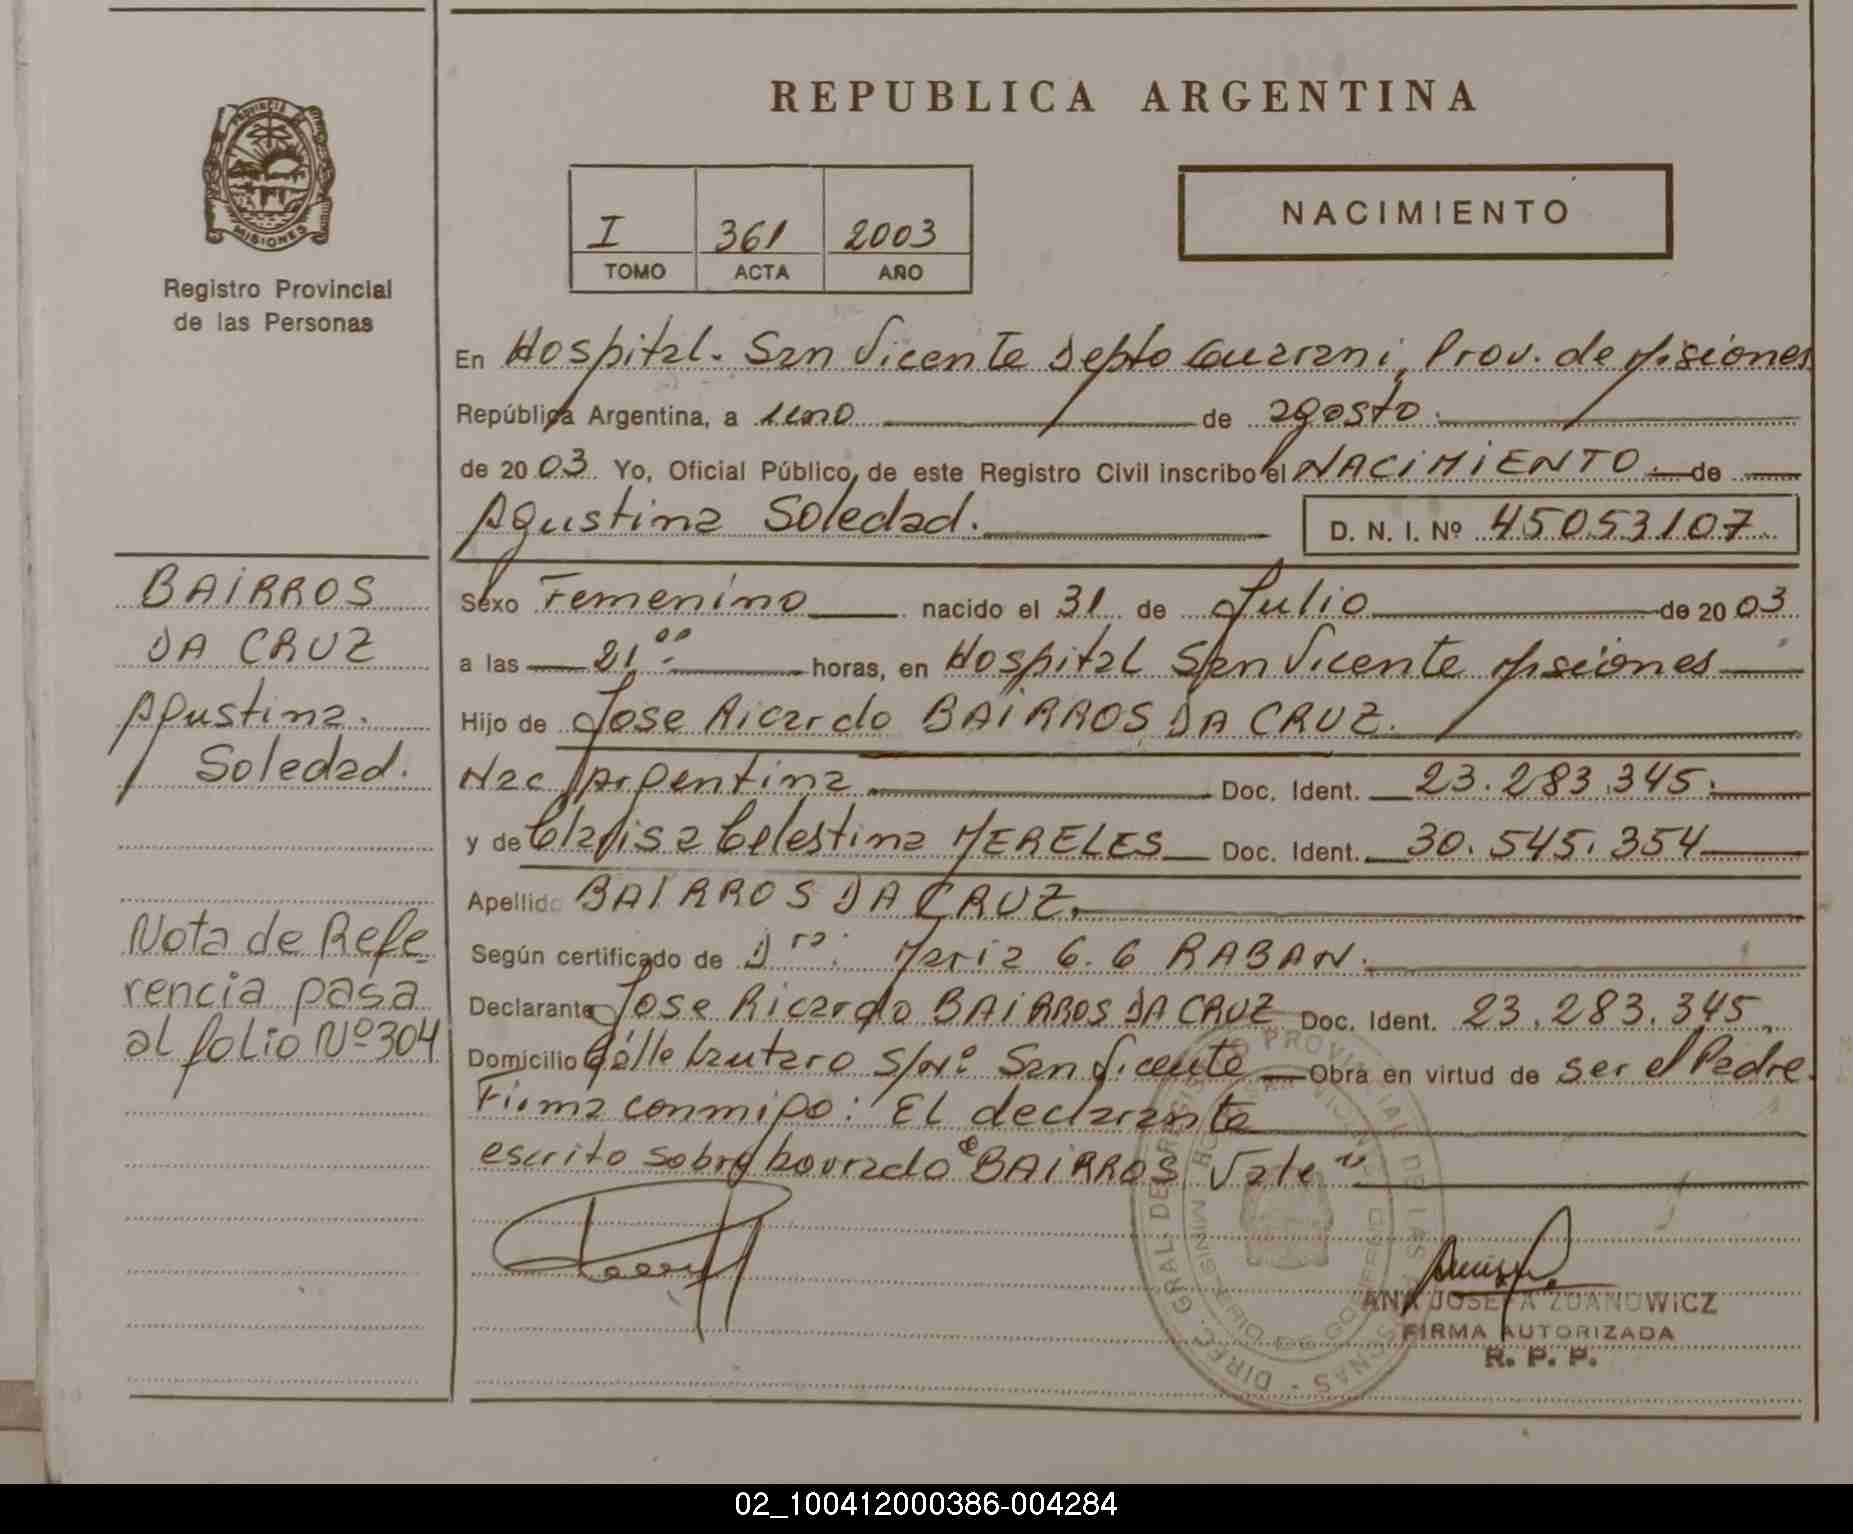 REPUBLICA ARGENTINA
PROVINCIA DE
MISIONES
Registro Provincial
de las Personas
I 361 2003
TOMO ACTA AÑO
NACIMIENTO
En Hospital. San Vicente Depto Guarani, Prov. de Misiones
República Argentina, a uno de agosto.
de 2003. Yo, Oficial Público, de este Registro Civil inscribo el NACIMIENTO. de
Agustina Soledad. D. N. I. Nº 45053107
Sexo Femenino nacido el 31 de Julio de 2003
a las 21.00 horas, en Hospital San Vicente Misiones
Hijo de Jose Ricardo BAIRROS DA CRUZ.
Nac Argentina Doc. Ident. 23.283.345.
y de Celestina MERELES Doc. Ident. 30.545.354
Apellido BAIRROS DA CRUZ.
Según certificado de Dra. Maria G. G RABAN.
Declarante Jose Ricardo BAIRROS DA CRUZ Doc. Ident. 23.283.345.
Domicilio Calle Lautaro S/Nº San Vicente Obra en virtud de ser el Padre.
Firma conmigo: El declarante
escrito sobre borrado "BAIRROS Vale"
BAIRROS
DA CRUZ
Agustina.
Soledad.
Nota de Refe-
rencia pasa
al folio Nº 304
DIREC. GRAL. DEL REGISTRO PROVINCIAL DE LAS PERSONAS
ANA JOSEFA ZDANOWICZ
FIRMA AUTORIZADA
R. P. P.
02_100412000386-004284